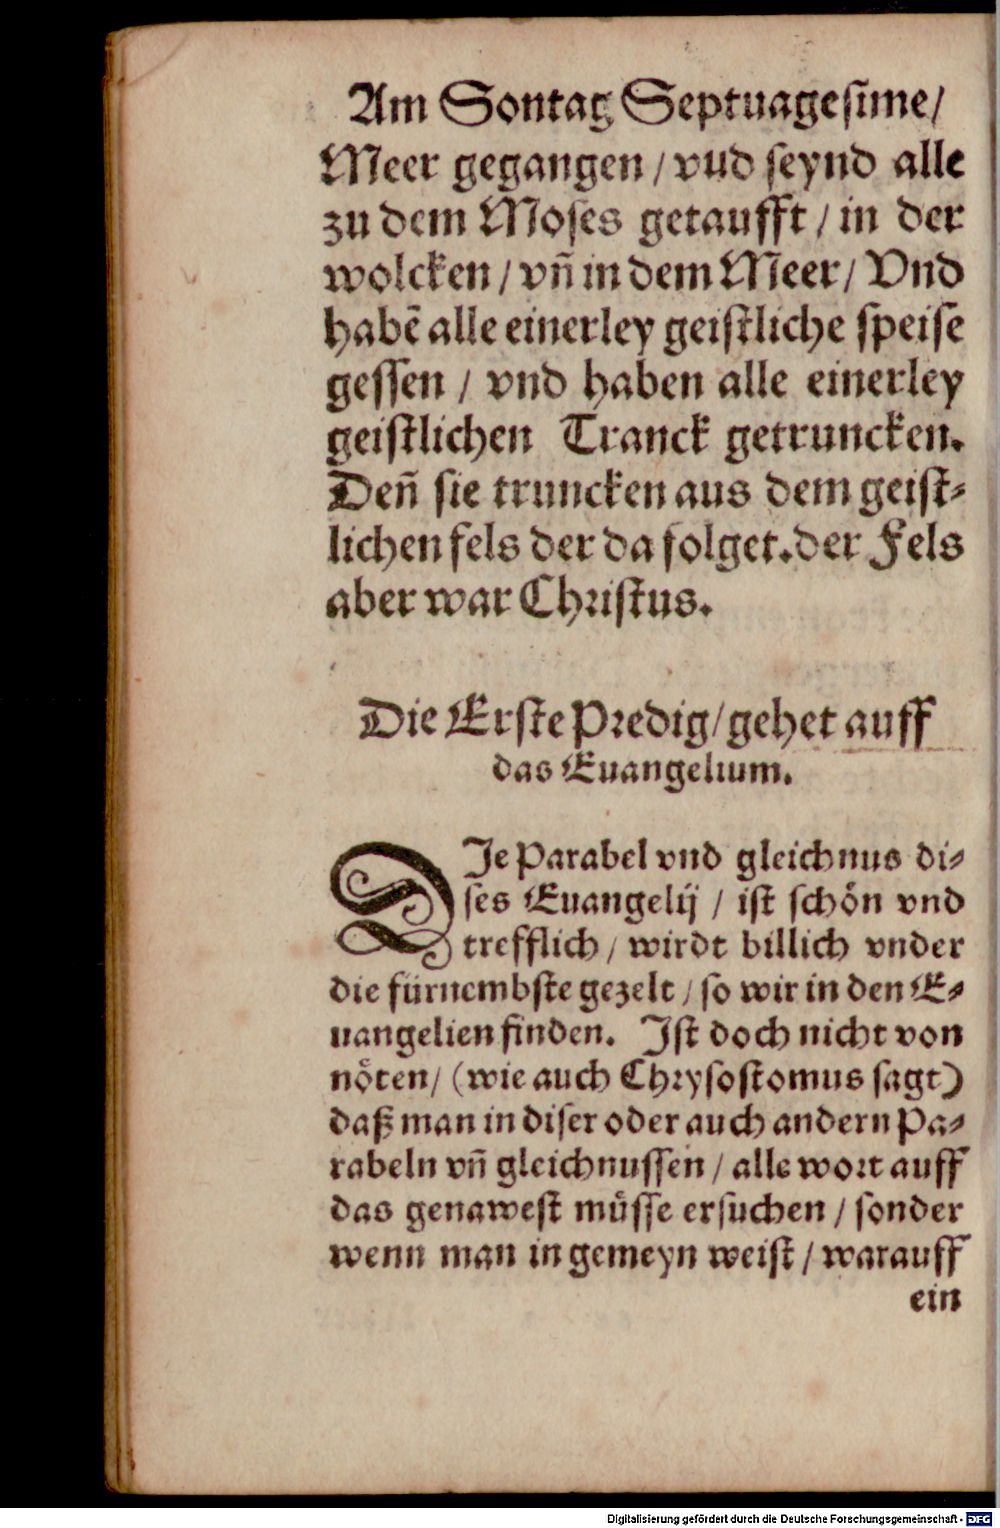 Am Sontag Septuagesime/
Meer gegangen / vud seynd alle
zu dem Moses getaufft / in der
wolcken / vñ in dem Meer / Vnd
habē alle einerley geistliche speise
gessen / vnd haben alle einerley
geistlichen Tranck getruncken.
Deñ sie truncken aus dem geist-
lichen fels der da folget. der Fels
aber war Christus.
Die Erste Predig / gehet auff
das Euangelium.
DJe Parabel vnd gleichnus di-
ses Euangelij / ist schön vnd
trefflich / wirdt billich vnder
die fürnembste gezelt / so wir in den E-
uangelien finden. Jst doch nicht von
nöten / (wie auch Chrysostomus sagt)
daß man in diser oder auch andern Pa-
rabeln vñ gleichnussen / alle wort auff
das genawest müsse ersuchen / sonder
wenn man in gemeyn weist / warauff
ein
Digitalisierung gefördert durch die Deutsche Forschungsgemeinschaft - DFG